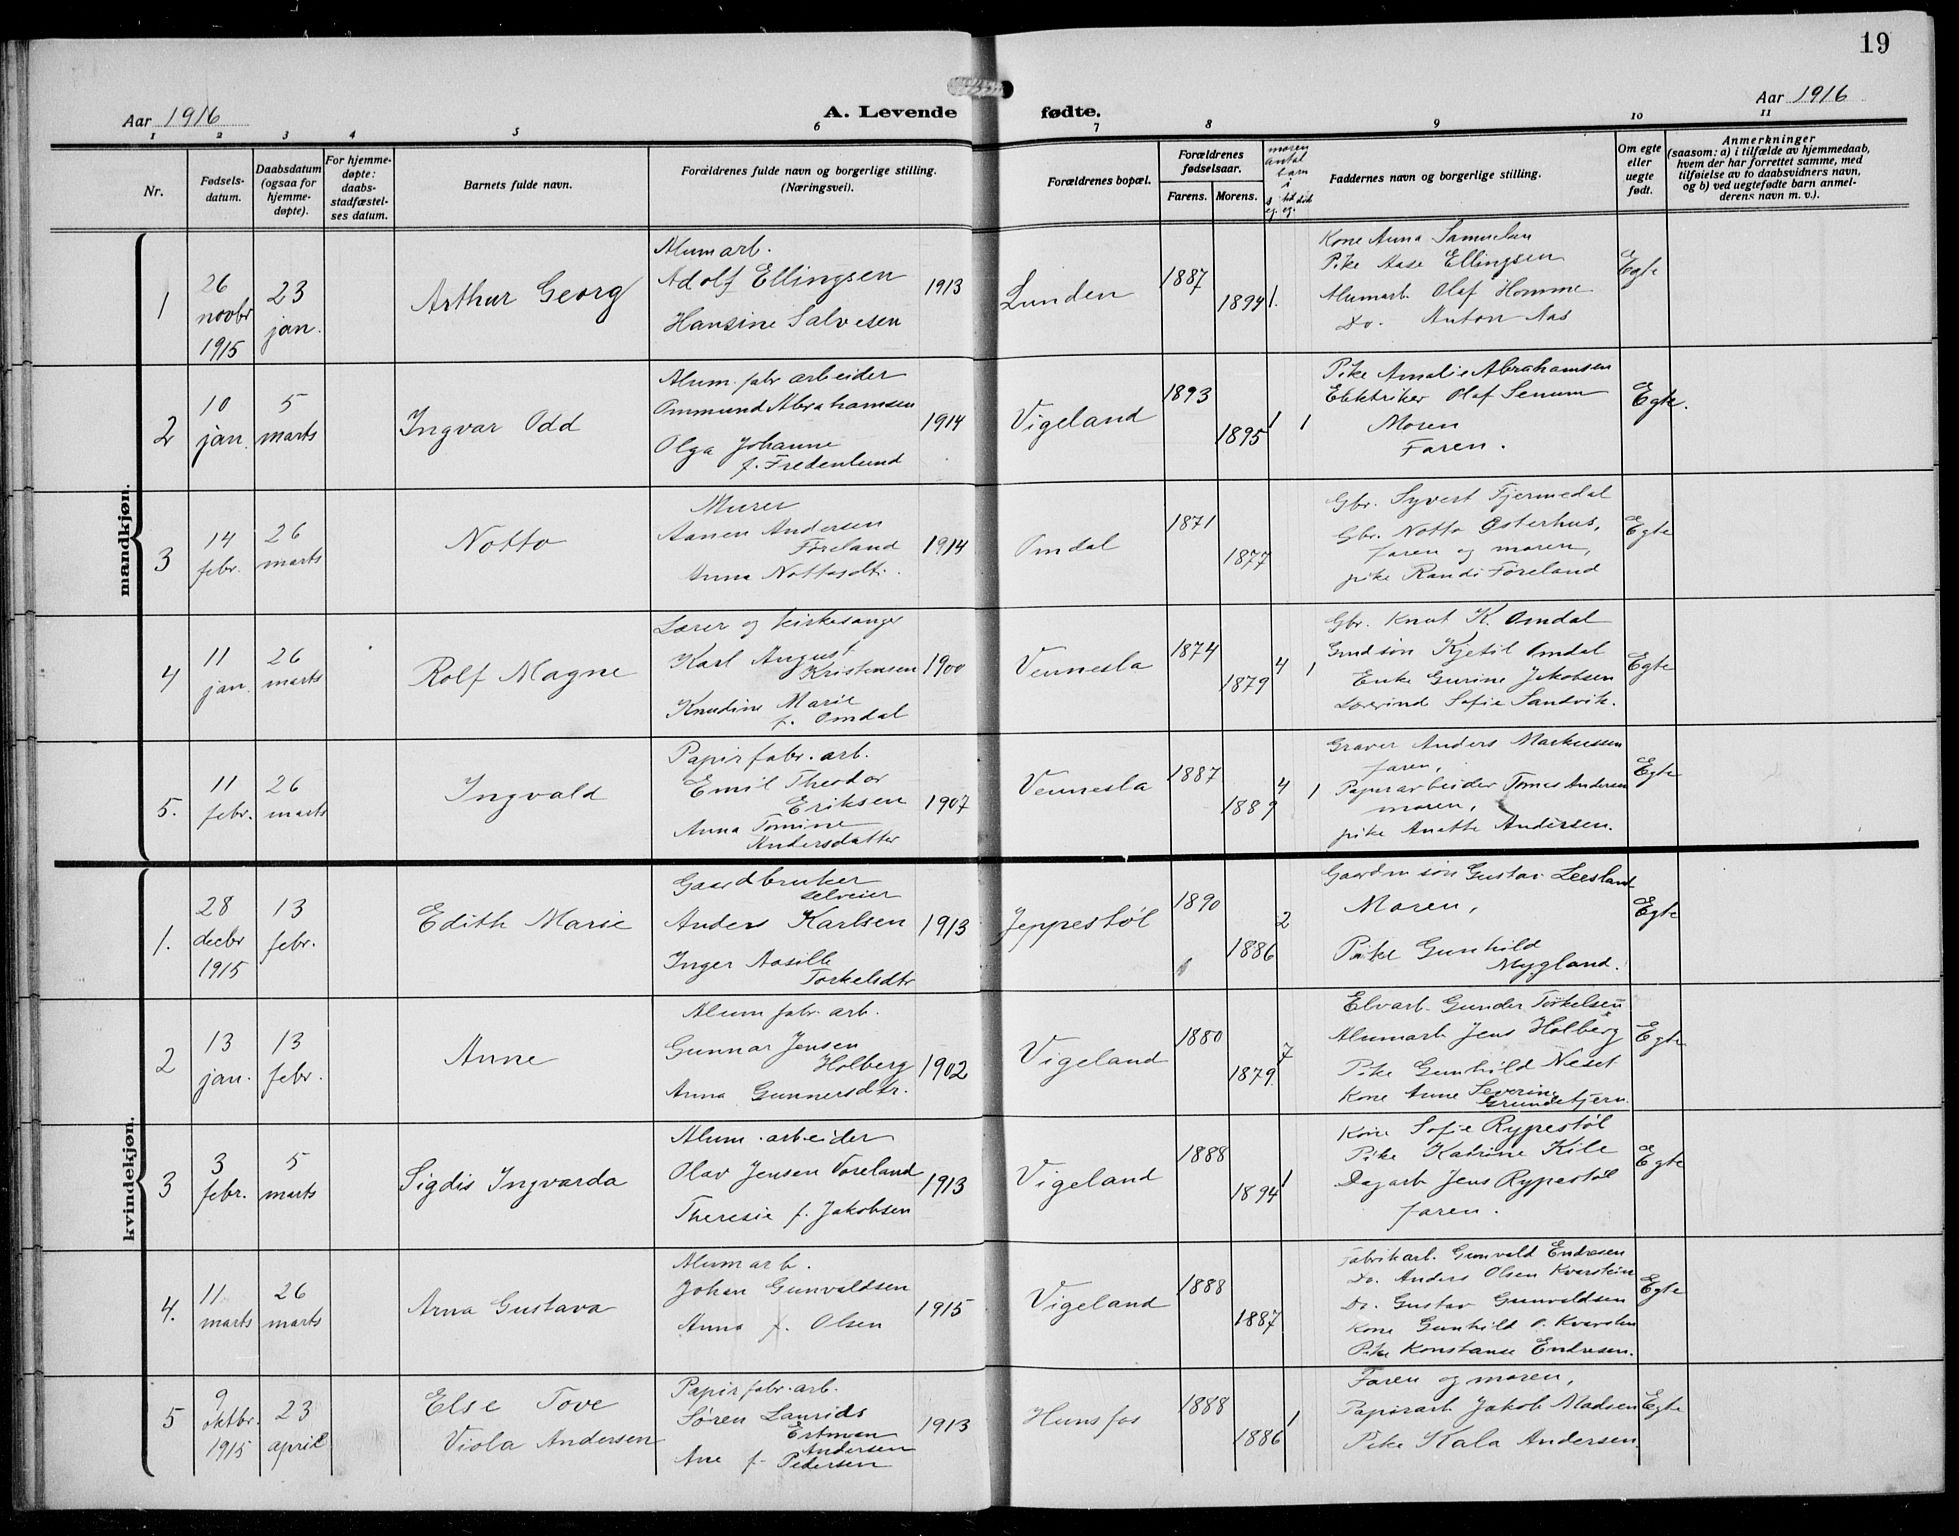 19
Aar 1916
A. Levende fødte.
Aar 1916
1 2 3 4 5 6 7 8 9 10 11
Nr.
Fødsels-
datum.
Daabsdatum
(ogsaa for
hjemme-
døpte).
For hjemme-
døpte:
daabs-
stadfæstel-
ses datum.
Barnets fulde navn.
Forældrenes fulde navn og borgerlige stilling.
(Næringsvei).
Forældrenes bopæl.
Forældrenes
fødselsaar.
Farens. Morens.
moren
antal
barn
i
Faddernes navn og borgerlige stilling.
Om egte
eller
uegte
født.
Anmerkninger
(saasom: a) i tilfælde av hjemmedaab,
hvem der har forrettet samme, med
tilføielse av to daabsvidners navn,
og b) ved uegtefødte barn anmel-
derens navn m. v.).
mandkjøn.
1
26
novbr
1915
23
jan.
Arthur Georg
Alumarb.
Adolf Ellingsen
Hansine Salvesen
1913
Lunden
1887
1894
1.
Kone Anna Samuelsen
Pike Aase Ellingsen
Alumarb. Olaf Homme
Do. Anton Aas
Egte
2
10
jan.
5
marts
Ingvar Odd
Alum. fabr arbeider
Ommund Abrahamsen
Olga Johanne
f. Fredenlund
1914
Vigeland
1893
1895
1 1
Pike Amalie Abrahamsen
Elektriker Olaf Senum
Moren
Faren.
Egte.
3
14
febr.
26
marts
Notto
Murer
Aanen Andersen
Føreland
Anna Nottosdtr.
1914
Omdal
1871
1877
Gbr. Syvert Fjermedal
Gbr. Notto Østerhus,
faren og moren,
pike Randi Føreland
Egte
4
11
jan.
26
marts
Rolf Magne
Lærer og kirkesanger
Karl August
Kristensen
Knudine Marie
f. Omdal
1900
Vennesla
1874
1879
4 1
Gbr. Knut K. Omdal
Grdsøn Kjetil Omdal
Enke Gurine Jakobsen
Lærerind Sofie Sandvik.
Egte
5.
11
febr.
26
marts
Ingvald
Papirfabr. arb.
Emil Theodor
Eriksen
Anna Tomine
Andersdatter
1907
Vennesla
1887
1889
4 1
Graver Anders Markussen
faren,
Papirarbeider Tomas Andersen
moren,
pike Anette Andersen.
Egte
kvindekjøn.
1.
28
decbr
1915
13
febr.
Edith Marie
Gaardbruker
selveier
Anders Karlsen
Inger Aasille
Torkelsdtr
1913
Jeppestøl
1890
1886
2
Gaardm søn Gustav Leesland
Moren,
Pike Gunhild
Mygland.
Egte
2
13
jan.
13
febr.
Anne
Alum fabr. arb.
Gunnar Jensen
Holberg
Anna Gunnersdtr.
1902
Vigeland
1880
1879
7
Elvarb. Gunder Torkelsen
Alumarb Jens Holberg
Pike Gunhild Neset
Kone Anne Severine
Grundetjern.
Egte
3
3
febr.
5
marts
Sigdis Ingvarda
Alum. arbeider
Olav Jensen Voreland
Theresie f. Jakobsen
1913
Vigeland
1888
1894
1
Kone Sofie Rypestøl
Pike Katrine Kile
Dagarb Jens Rypestøl
faren.
Egte
4.
11
marts
26
marts
Arna Gustava
Alumarb.
Johan Gunvaldsen
Anna f. Olsen
1915
Vigeland
1888
1887
Fabrikarb. Gunvald Endresen
Do. Anders Olsen Kverstein
Do. Gustav Gunvaldsen
Kone Gunhild O. Kverstein
Pike Konstanse Endresen.
Egte
5
9
oktbr.
1915
23
april
Else Tove
Viola Andersen
Papirfabr. arb.
Søren Laurids
Ertman
Andersen
Ane f. Pedersen
1913
Hunsfos
1888
1886
1
Faren og moren,
Papirarb Jakob Madsen
Pike Kala Andersen.
Egte